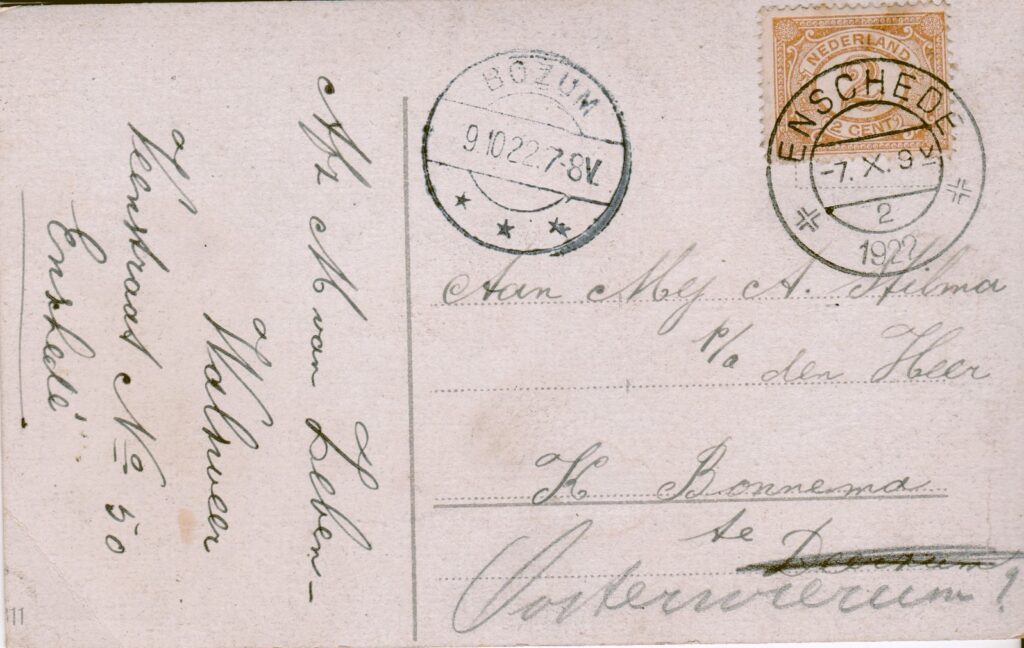 Afz M van Leben-
Walsweer
Veenstraat No 50
Enschedé
BOZUM
9.10.22.7-8V.
NEDERLAND
2
(2 CENT)
ENSCHEDE
-7.X.9V
2
1922
Aan Mej A. Hilma
p/a den Heer
K Bonnema
te
Deersum
Oosterwierum!
11